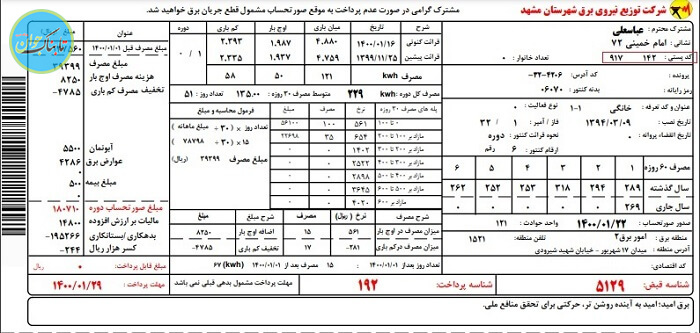 شرکت توزیع نیروی برق شهرستان مشهد
مشترک گرامی در صورت عدم پرداخت به موقع صورتحساب مشمول قطع جریان برق خواهید شد.
عباسعلی
نشانی: امام خمینی ۷۲
کد پستی: ۱۴۲ ۹۱۷
تعداد خانوار: ۰
پرونده: ۳۲-۴۲۰۶
کد آدرس:
رمز رایانه:
بدنه کنتور: ۰۶۰۷۰
عنوان و کد تعرفه: خانگی ۱-۱
نوع فعالیت: ۰
تاریخ نصب: ۱۳۹۴/۰۳/۰۹
فاز / آمپر: ۳۲ / ۱
تاریخ انقضاء پروانه: ۰
نحوه قرائت کنتور: دوره
ارقام کنتور: ۶ رقم
مصرف ۶۰ روزه ۱ ۲ ۳ ۴ ۵ ۶
سال گذشته ۲۸۹ ۲۹۴ ۳۱۸ ۲۵۳ ۲۵۲ ۲۶۲
سال جاری ۲۶۹ ۰ ۰ ۰ ۰ ۰
صدور صورتحساب ۱۴۰۰/۰۱/۲۲
واحد حوادث: ۱۲۱
منطقه برق: امور برق۲
تلفن منطقه: ۱۵۲۱
آدرس: میدان ۱۷ شهریور - خیابان شهید شیرودی
کد اقتصادی:
شناسه قبض: ۵۱۲۹
شرح
تاریخ
میان باری
اوج باری
کم باری
قرائت کنونی ۱۴۰۰/۰۱/۱۶ ۴.۸۸۰ ۱.۹۸۷ ۲.۳۹۳
قرائت پیشین ۱۳۹۹/۱۱/۲۵ ۴.۷۵۹ ۱.۹۳۷ ۲.۳۳۵
مصرف kwh ۱۲۱ ۵۰ ۵۸
۰ / ۱
مصرف کل دوره: kwh ۲۲۹
متوسط مصرف ۳۰ روزه: ۱۳۵.۰۰
تعداد روز: ۵۱
پله های مصرف ۳۰ روزه نرخ مصرف مبلغ
۰ تا ۱۰۰ ۵۶۱ ۱۰۰ ۵۶۱۰۰
مازاد بر ۱۰۰ تا ۲۰۰ ۶۵۴ ۳۵ ۲۲۶۹۸
مازاد بر ۲۰۰ تا ۳۰۰ ۱۴۰۲
مازاد بر ۳۰۰ تا ۴۰۰ ۲۵۲۲
مازاد بر ۴۰۰ تا ۵۰۰ ۲۸۹۸
مازاد بر ۵۰۰ تا ۶۰۰ ۳۶۴۵
مازاد بر ۶۰۰ ۴۰۲۰
فرمول محاسبه و مبلغ
تعداد روز ( ۳۰ ÷ مبلغ ماهانه )
۱۵ × ( ۳۰ ÷ ۷۸۷۹۸ )
(ریال) ۳۹۳۹۹
شرح مصرف نرخ ( ریال ) مصرف شرح مبلغ مبلغ
میزان مصرف در اوج بار ۵۶۱ ۱۵ اضافه اوج بار ۸۲۵۰
میزان مصرف در کم بار -۲۸۱ ۱۷ تخفیف کم باری -۴۷۸۵
تعداد روز از ۱۴۰۰/۰۱/۰۱ : ۱۵
مصرف بعد از ۱۴۰۰/۰۱/۰۱ : (kwh) ۶۷
شناسه پرداخت: ۱۹۲
مهلت پرداخت مشمول بدهی قبلی نمی باشد
عنوان
مبلغ
مصرف قبل ۱۴۰۰/۰۱/۰۱
مبلغ مصرف ۳۹۳۹۹
هزینه مصرف اوج بار ۸۲۵۰
تخفیف مصرف کم باری -۴۷۸۵
آبونمان ۵۵۰۰
عوارض برق ۴۲۸۶
مبلغ بیمه ۵۰۰
مبلغ صورتحساب دوره ۱۸۰۷۱۰
مالیات بر ارزش افزوده ۱۴۸۰۰
بدهکاری /بستانکاری -۱۹۵۲۶۶
کسر هزار ریال -۲۴۴
مبلغ قابل پرداخت: ۰ ریال
مهلت پرداخت: ۱۴۰۰/۰۱/۲۹
برق امید؛ امید به آینده روشن تر، حرکتی برای تحقق منافع ملی.